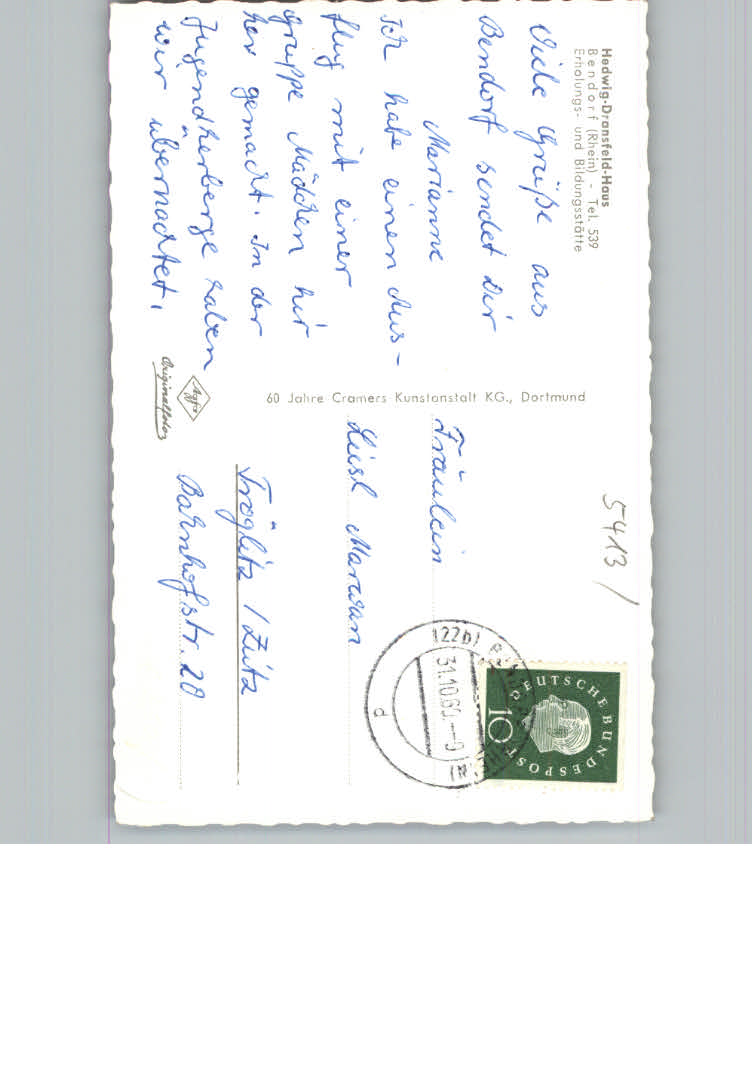 Hedwig-Dransfeld-Haus
Bendorf (Rhein) - Tel. 539
Erholungs- und Bildungsstätte
Viele Grüße aus
Bendorf sendet Dir
Marianne
Ich habe einen Aus-
flug mit einer
gruppe Mädchen hir
her gemacht. In der
Jugendherberge haben
wir übernachtet.
60 Jahre Cramers Kunstanstalt KG., Dortmund
Agfa
Originalfoto
5413/
Fräulein
Liesl
Tröglitz / Zeitz
Bahnhofstr. 20
(22b)
31.10.60.
d
DEUTSCHE BUNDESPOST
10